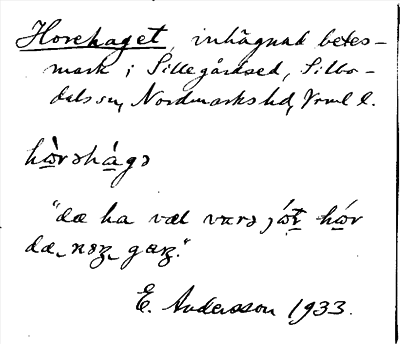 Horehaget, inhägnad betes-
mark i Sillegårdsed, Silbo-
dals sn, Nordmarks hd, Vrml l.
hὼrəhágə
"dæ ha væl varə jώṯ hώr
dæ, nəʒ gaʒ."
E. Andersson 1933.